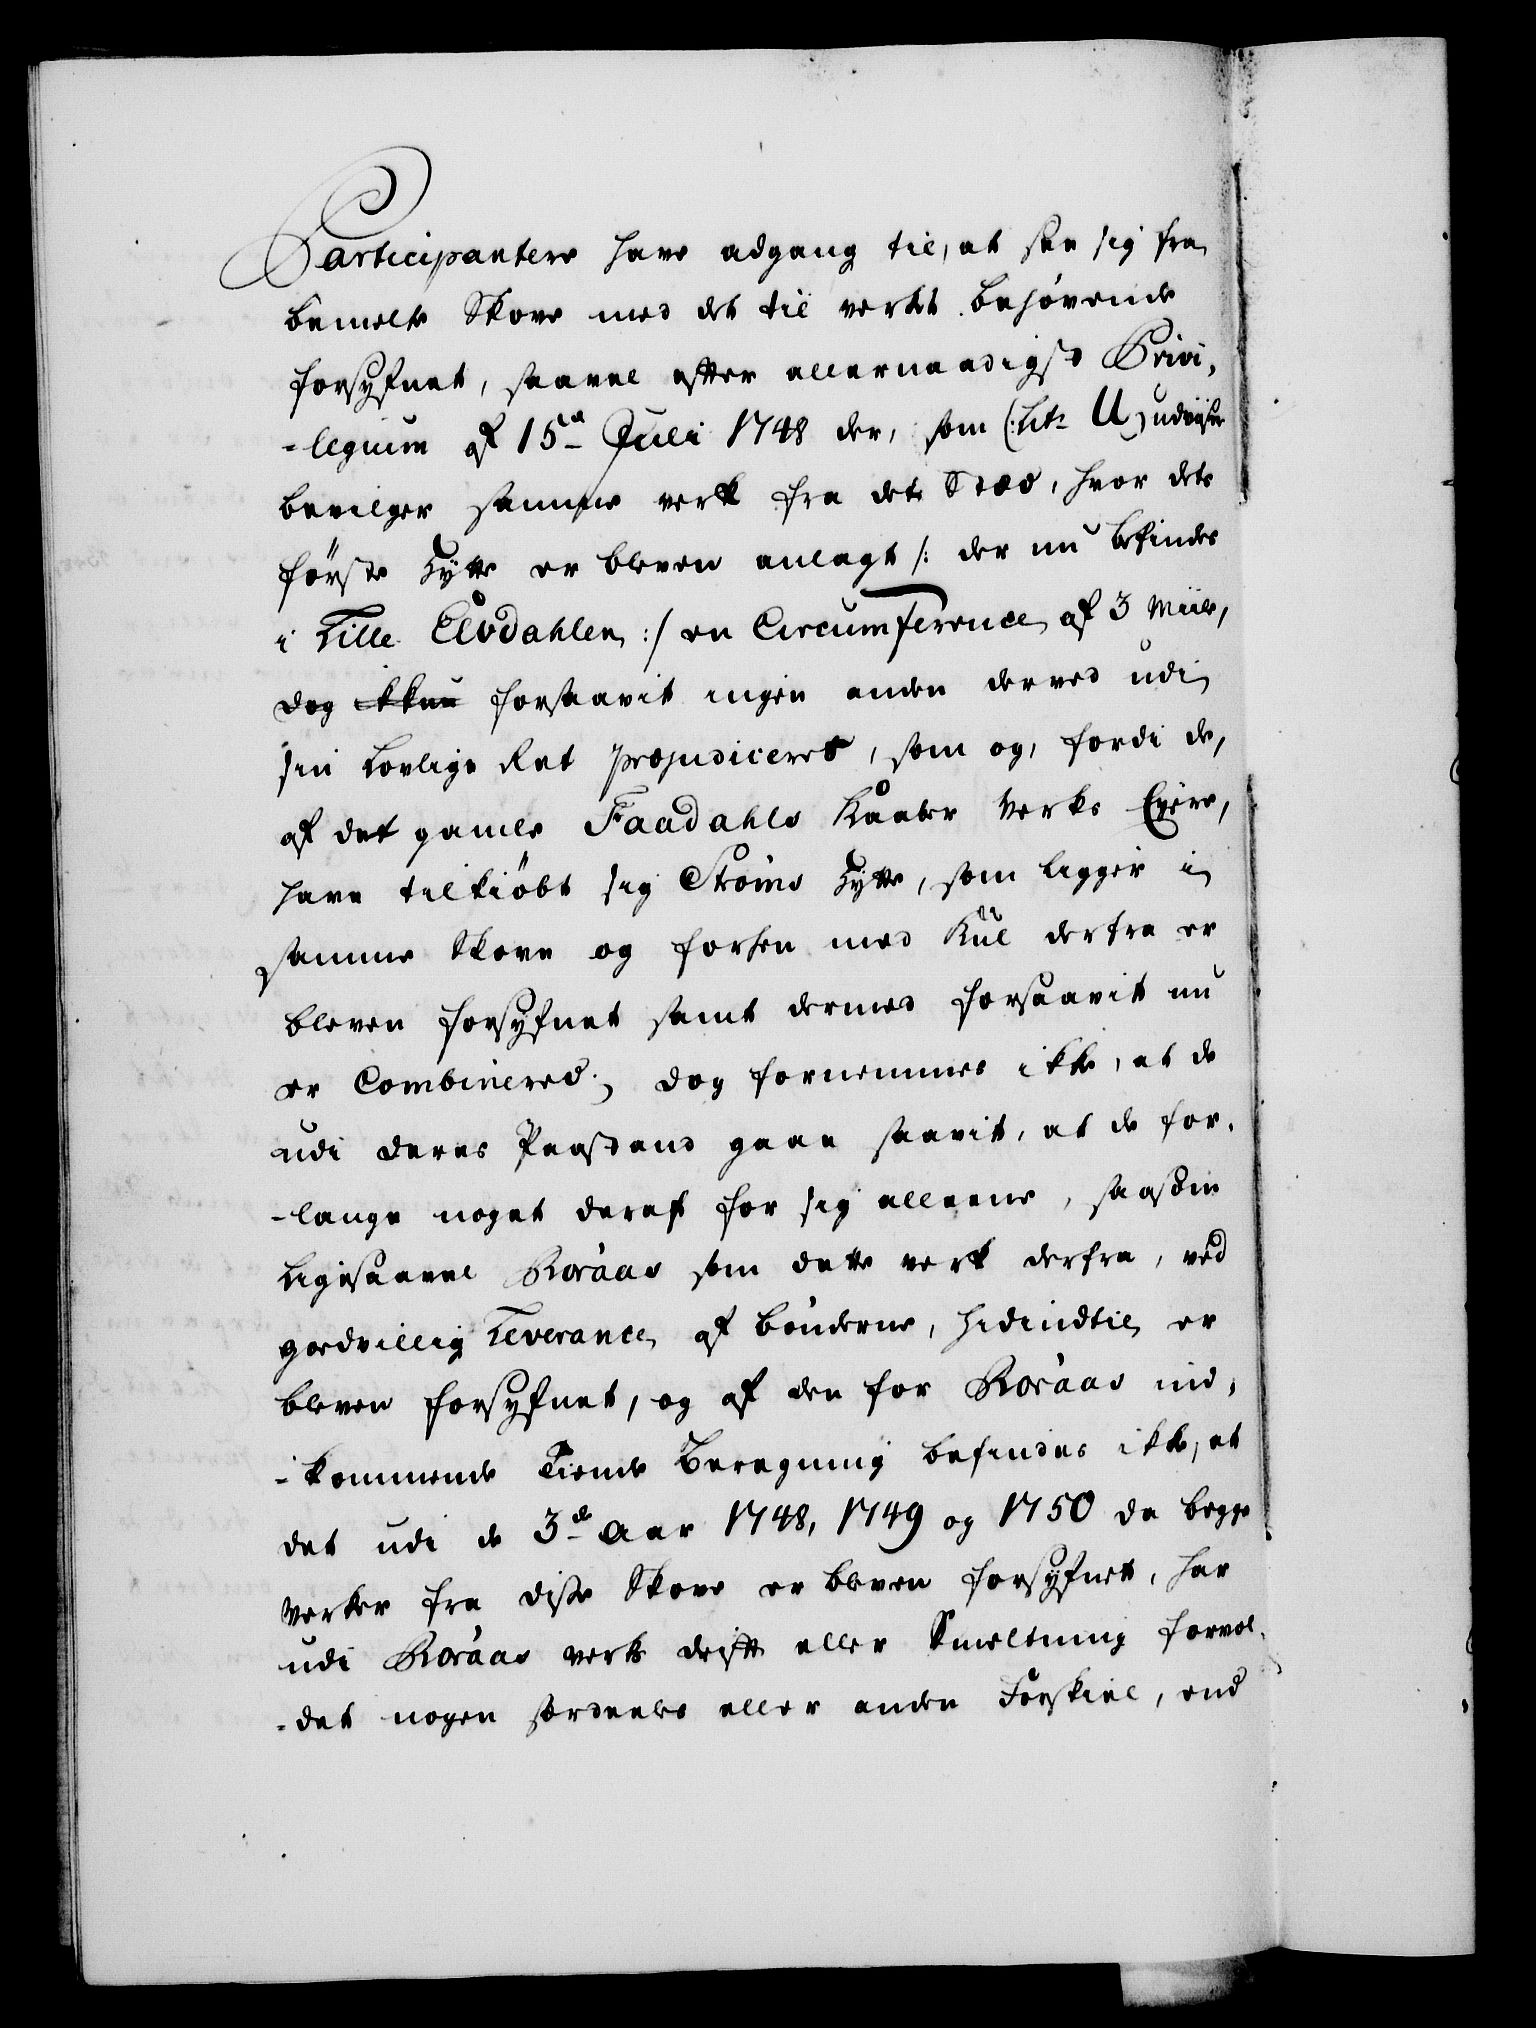 Participantere have adgang til, at see sig fra
bemelte Skove med det til verket behøvende
forsyfnet, saavel efter allernaadigst Privi,
-legium af 15de Juli 1748 der, som (: Litr U :) udviiser
bevilger samme verk fra det Stæd, hvor dets
første Hytte er bleven anlagt /: der nu befindes
i Lille Elvdahlen :/ en Circumference af 3 Miile,
dog forsaavit ingen anden derved udi
sin Lovlige Ret præjudiceret, som og, fordi de,
af det gamle Faadahls Kaaber Verks Eyere,
have tilkiøbt sig Strøms Hytte, som ligger i
samme Skove og forhen med Kul derfra er
bleven forsyfnet samt dermed forsaavit nu
er Combinered; dog fornemmes ikke, at de
udi deres Paastand gaae saavit, at de for,
-lange noget deraf for sig alleene, saasom
ligesaavel Røraas som dette verk derfra, ved
goedvillig Leverance af bønderne, hidindtil er
bleven forsyfnet, og af den for Røraas ind,
-kommende Tiende Beregning befindes ikke, at
det udi de 3de Aar 1748, 1749 og 1750 da begge
verker fra disse Skove er bleven forsyfnet, har
udi Røraas verks drift eller Smeltning forvol,
-det nogen særdeeles eller anden Forskiel, end